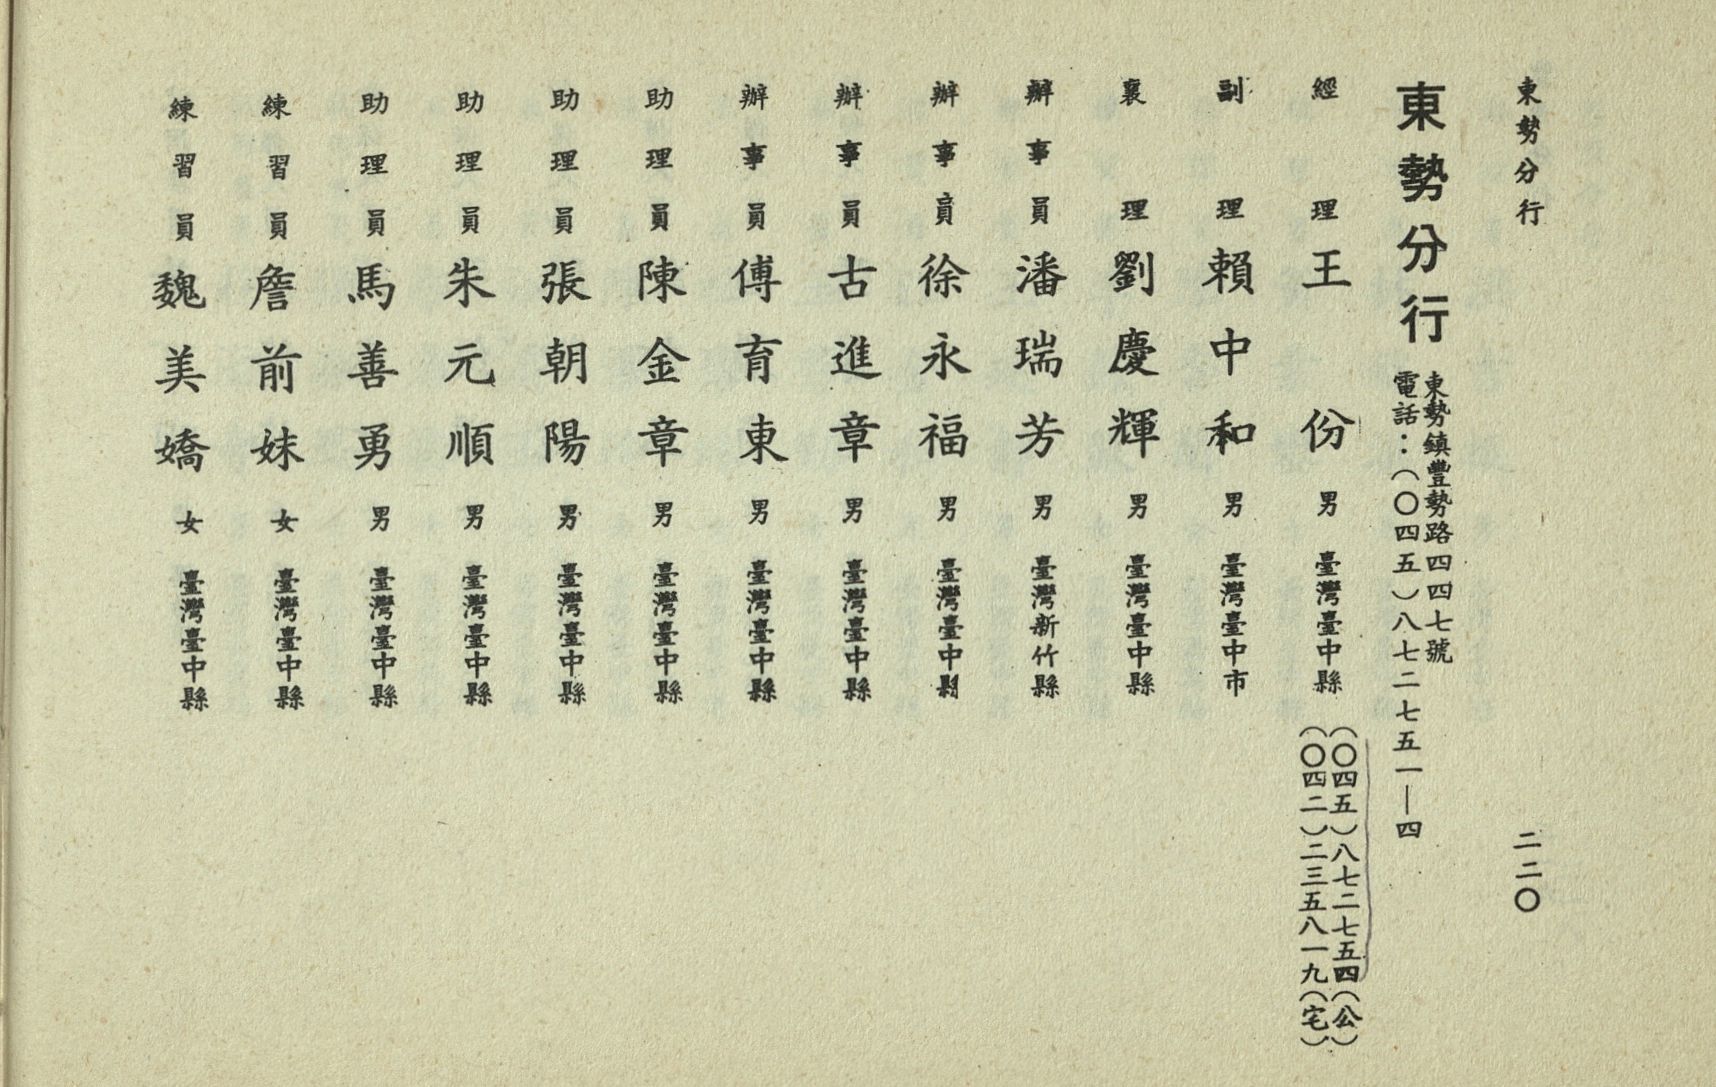 東勢分行
二二〇
東勢分行
東勢鎮豐勢路四四七號
電話：（〇四五）八七二七五一—四
經理 王份 男 臺灣臺中縣 （〇四五）八七二七五四（公）
（〇四二）二三五八一九（宅）
副理 賴中和 男 臺灣臺中市
襄理 劉慶輝 男 臺灣臺中縣
辦事員 潘瑞芳 男 臺灣新竹縣
辦事員 徐永福 男 臺灣臺中縣
辦事員 古進章 男 臺灣臺中縣
辦事員 傅育東 男 臺灣臺中縣
助理員 陳金章 男 臺灣臺中縣
助理員 張朝陽 男 臺灣臺中縣
助理員 朱元順 男 臺灣臺中縣
助理員 馬善勇 男 臺灣臺中縣
練習員 詹前妹 女 臺灣臺中縣
練習員 魏美嬌 女 臺灣臺中縣